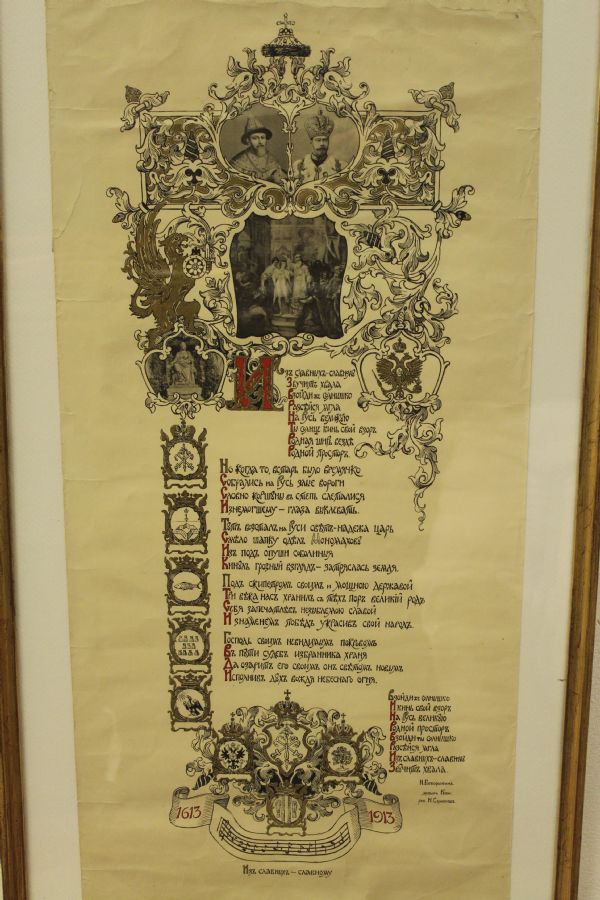 Изъ славныхъ-славнѣ
Звучитъ хвала
Взойди же солнышко
Разсѣйся мгла
На Русь великую
Ты солнце кинь свой взоръ
Родная ширь вездѣ
Родной просторъ.
Но когда то, встарь было времячко
Собрались на Русь злые вороги
Словно коршуны въ степь слеталися
Изнемогшему – глаза выклевать.
Тутъ возсталъ на Руси свѣтъ-надежа царь
Смѣло шапку одѣлъ Мономахову
Изъ подъ опуши соболиныя
Кинулъ грозный взглядъ – затряслась земля.
Подъ скипетромъ своимъ и мощною державой
Три вѣка насъ хранилъ съ тѣхъ поръ великій родъ
Себя запечатлѣвъ незыблемою славой
И знаменемъ побѣдъ украсивъ свой народъ.
Господь своимъ невидимымъ покровомъ
Въ пути судебъ избранника храня
Да озаритъ его своимъ онъ свѣтомъ новымъ
Исполнивъ духъ вождя небеснаго огня.
Взойди же солнышко
И кинь свой взоръ
На Русь великую
Родной просторъ
Взойди ты солнышко
Разсѣйся мгла
Изъ славныхъ-славнѣ
Звучитъ хвала.
1613
1913
Изъ славныхъ – славному